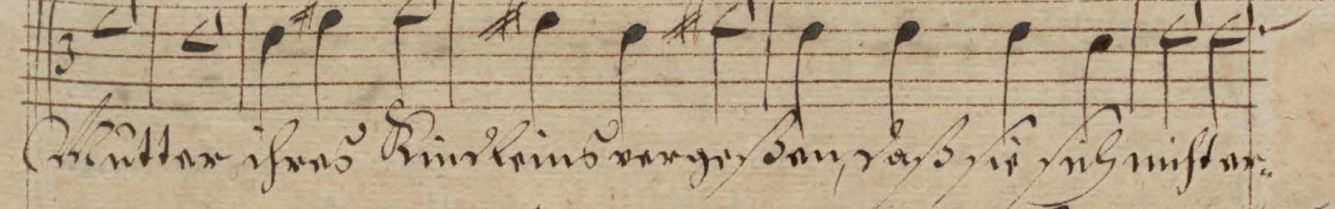 3
Mutter ihres Kindleins vergeßen, daß sie sich nicht er=